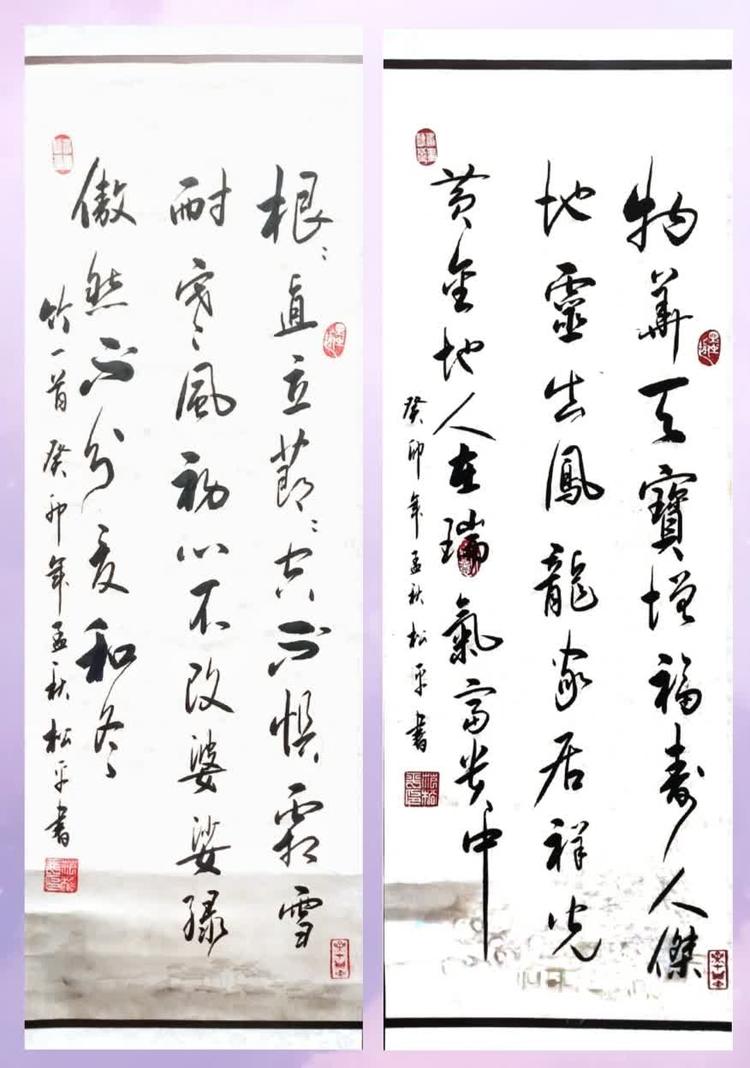 物華天寶增福壽人傑
地靈出鳳龍家居祥光
黃金地人在瑞氣富貴中
癸卯年孟秋松平書
根々直立節々空不惧霜雪
耐寒風初心不改婆娑綠
傲然不分夏和冬
竹一首癸卯年孟秋松平書